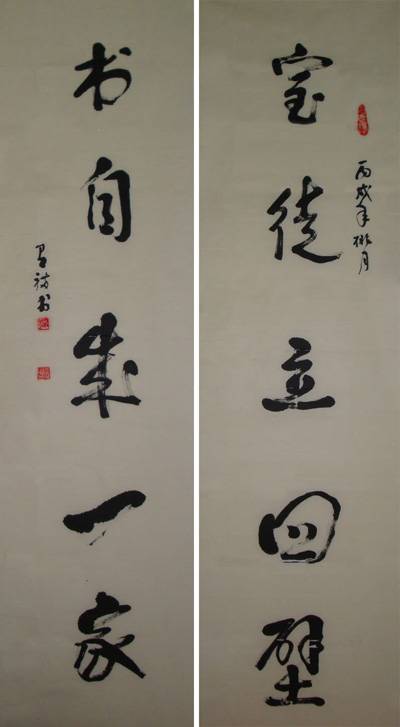 丙戌年桃月
室徒立四壁
书自成一家
书